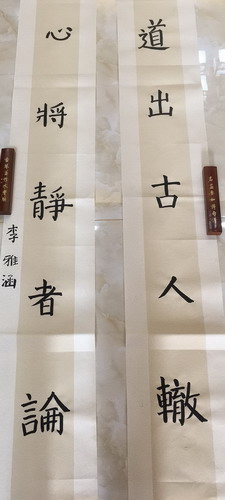 道出古人轍
心將靜者論
李雅涵